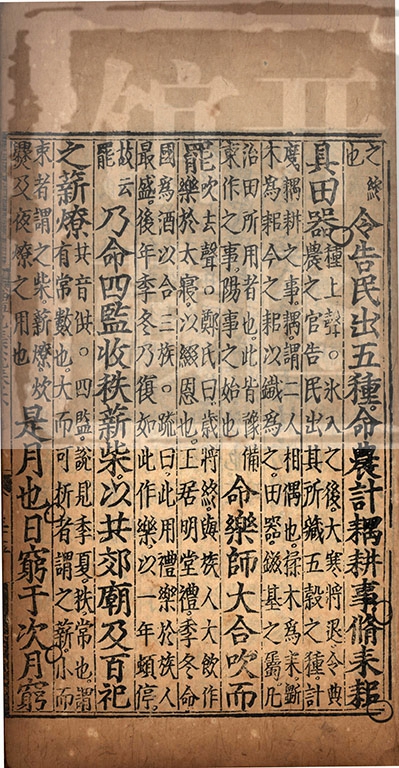 之終
也
令告民出五種命農計耦耕事脩耒耜
具田器
種上聲○氷入之後大寒將退令典
農之官告民出其所藏五穀之種計
度耦耕之事耦謂二人相偶也揉木為耒斲
木為耜今之耜以鐵為之田器鎡基之屬凡
治田所用者也此皆豫備
東作之事陽事之始也
命樂師大合吹而
罷
吹去聲○鄭氏曰歲將終與族人大飲作
樂於太寢以綴恩也王居明堂禮季冬命
國為酒以合三族○疏曰此用禮樂於族人
最盛後年季冬乃復如此作樂以一年頓停
故云
罷
乃命四監收秩薪柴以共郊廟及百祀
之薪燎
共音供○四監說見季夏秩常也謂
有常數也大而可折者謂之薪小而
束者謂之柴薪燎炊
爨及夜燎之用也
是月也日窮于次月窮